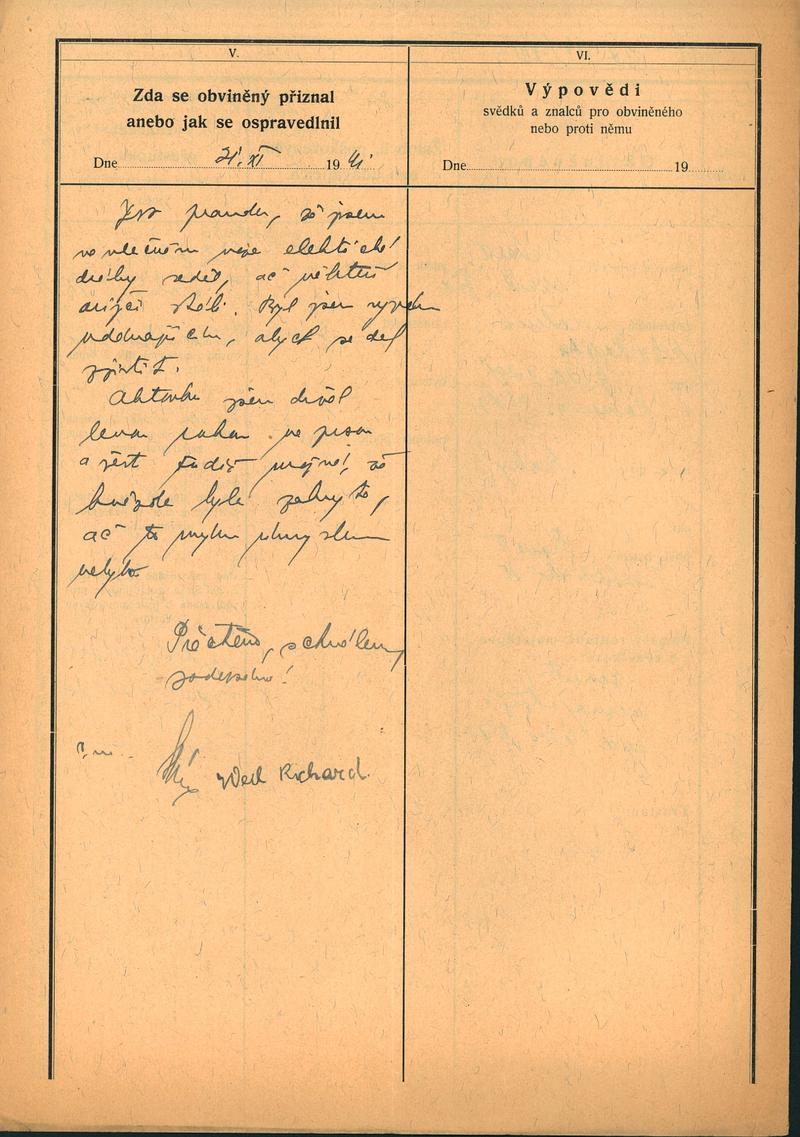 V.
Zda se obviněný přiznal
anebo jak se ospravedlnil
Dne 21. XI 1941
VI.
Výpovědi
svědků a znalců pro obviněného
nebo proti němu
Dne 19
Jest pravda, že jsem
ve vlečném voze elektrické
dráhy seděl, ač někteří
árijci stáli. Byl jsem vyzván
, abych se dal
zjistit.
Aktovku jsem držel
levou rukou na prsou
a jest tudíž možné, že
hvězda byla zakryta,
ač to mým úmyslem
nebylo.
Přečteno, schváleno,
podepsáno!
Weil Richard.